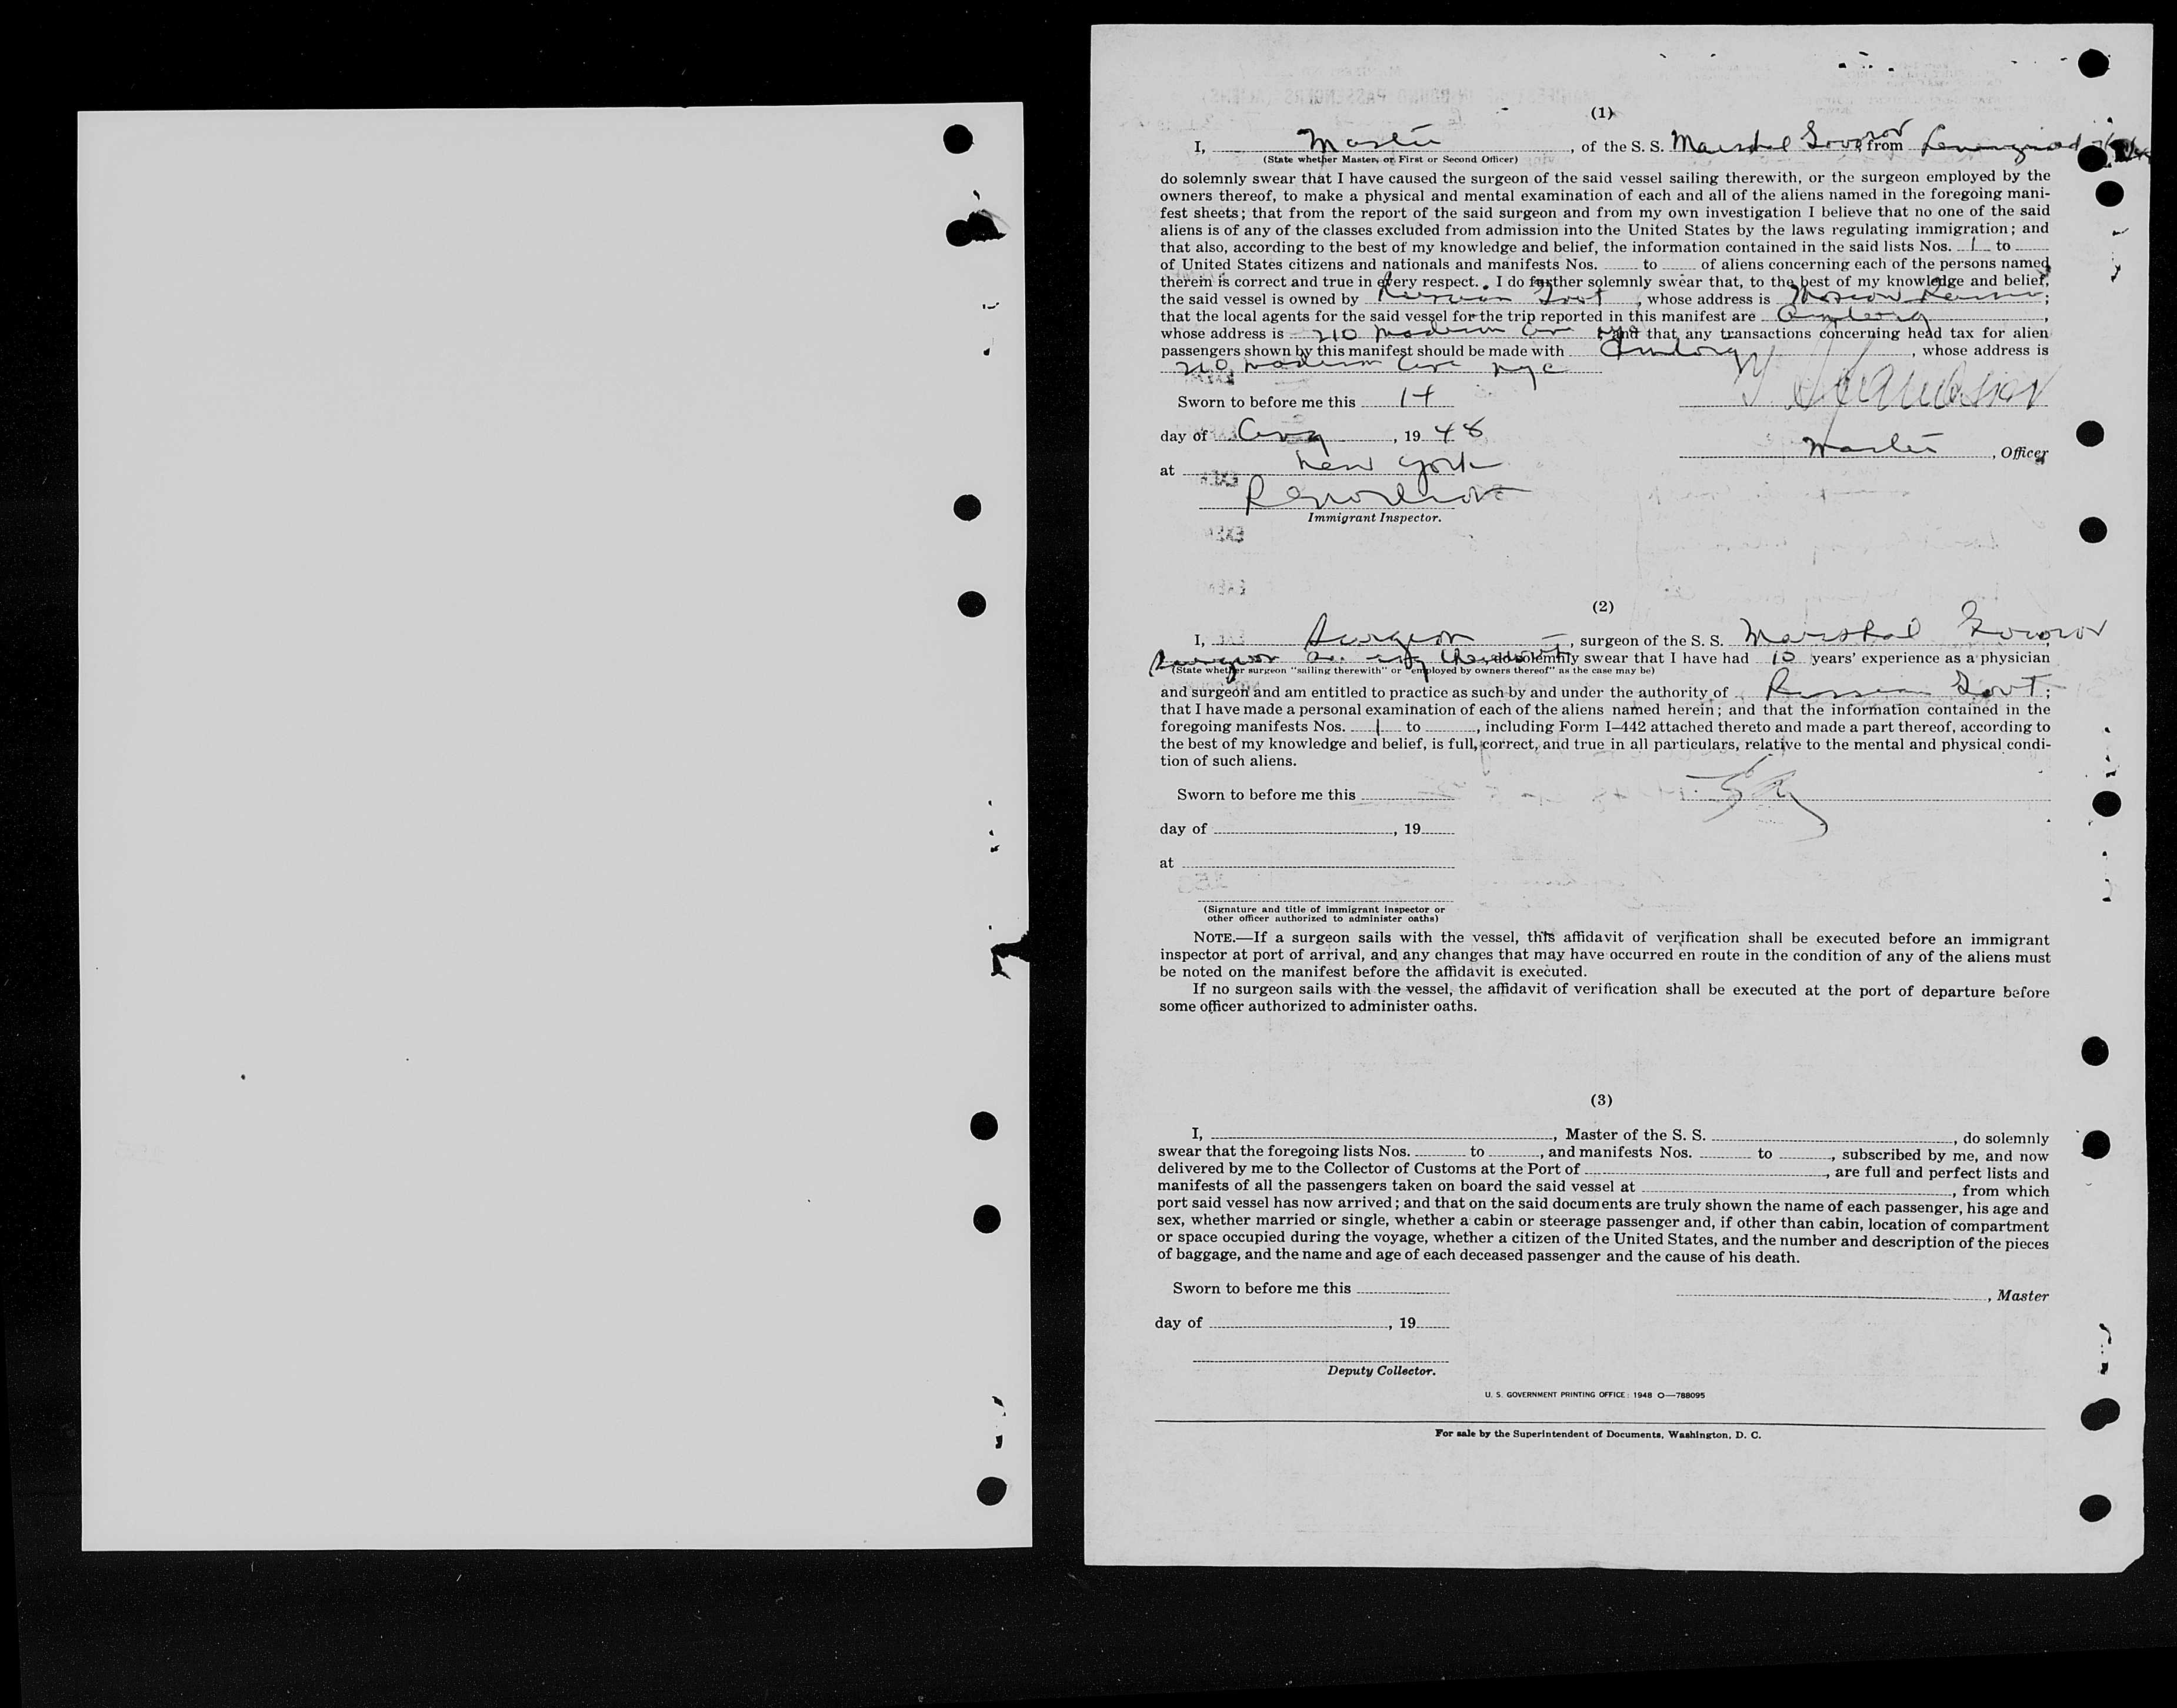 (1)
I, Master, of the S. S. Marshal Govorov from Leningrad
(State whether Master, or First or Second Officer)
do solemnly swear that I have caused the surgeon of the said vessel sailing therewith, or the surgeon employed by the
owners thereof, to make a physical and mental examination of each and all of the aliens named in the foregoing mani-
fest sheets; that from the report of the said surgeon and from my own investigation I believe that no one of the said
aliens is of any of the classes excluded from admission into the United States by the laws regulating immigration; and
that also, according to the best of my knowledge and belief, the information contained in the said lists Nos. 1 to
of United States citizens and nationals and manifests Nos. to of aliens concerning each of the persons named
therein is correct and true in every respect. I do further solemnly swear that, to the best of my knowledge and belief,
the said vessel is owned by Russian Govt, whose address is Moscow Russia;
that the local agents for the said vessel for the trip reported in this manifest are Amtorg,
whose address is 210 Madison Ave NYC; and that any transactions concerning head tax for alien
passengers shown by this manifest should be made with Amtorg, whose address is
210 Madison Ave NYC
Sworn to before me this 14
day of Aug, 1948
Master, Officer
at New York
Immigrant Inspector.
(2)
I, Surgeon, surgeon of the S. S. Marshal Govorov,
Surgeon do solemnly swear that I have had 10 years' experience as a physician
(State whether surgeon "sailing therewith" or "employed by owners thereof" as the case may be)
and surgeon and am entitled to practice as such by and under the authority of Russian Govt;
that I have made a personal examination of each of the aliens named herein; and that the information contained in the
foregoing manifests Nos. 1 to, including Form I-442 attached thereto and made a part thereof, according to
the best of my knowledge and belief, is full, correct, and true in all particulars, relative to the mental and physical condi-
tion of such aliens.
Sworn to before me this
day of, 19
at
(Signature and title of immigrant inspector or
other officer authorized to administer oaths)
NOTE.—If a surgeon sails with the vessel, this affidavit of verification shall be executed before an immigrant
inspector at port of arrival, and any changes that may have occurred en route in the condition of any of the aliens must
be noted on the manifest before the affidavit is executed.
If no surgeon sails with the vessel, the affidavit of verification shall be executed at the port of departure before
some officer authorized to administer oaths.
(3)
I, , Master of the S. S. , do solemnly
swear that the foregoing lists Nos. to , and manifests Nos. to , subscribed by me, and now
delivered by me to the Collector of Customs at the Port of , are full and perfect lists and
manifests of all the passengers taken on board the said vessel at , from which
port said vessel has now arrived; and that on the said documents are truly shown the name of each passenger, his age and
sex, whether married or single, whether a cabin or steerage passenger and, if other than cabin, location of compartment
or space occupied during the voyage, whether a citizen of the United States, and the number and description of the pieces
of baggage, and the name and age of each deceased passenger and the cause of his death.
Sworn to before me this
, Master
day of , 19
Deputy Collector.
U. S. GOVERNMENT PRINTING OFFICE: 1948 O—788095
For sale by the Superintendent of Documents, Washington, D. C.